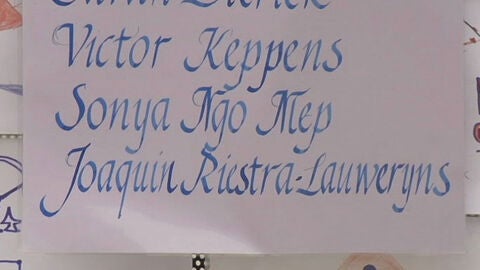 Victor Keppens
Sonya Ngo Mep
Joaquin Riestra-Lauweryns